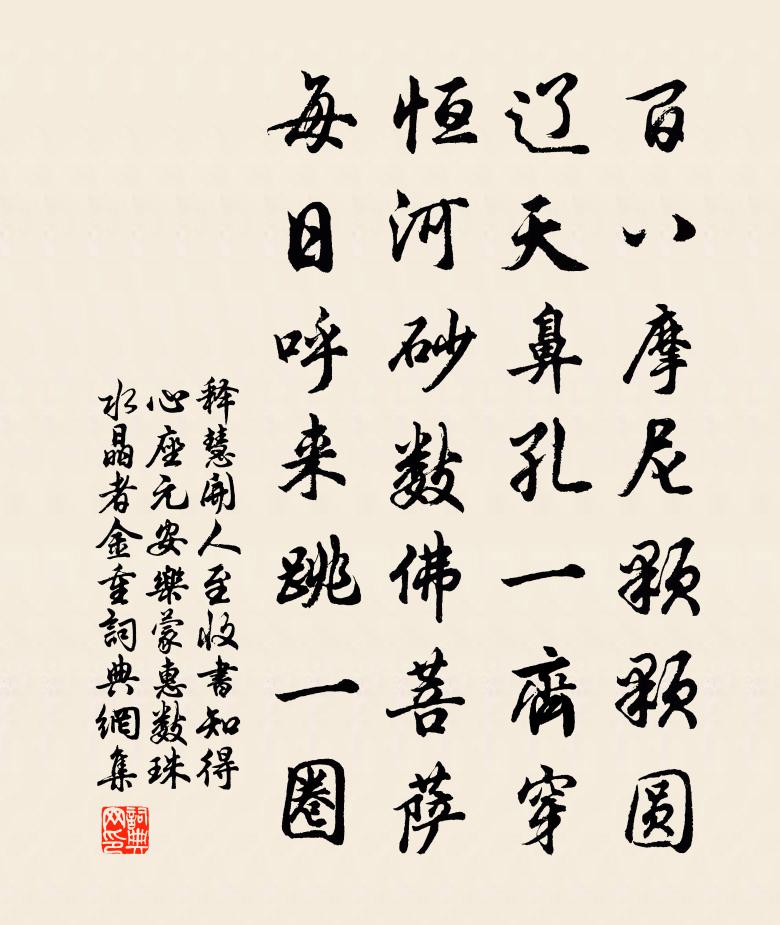 百八摩尼颗颗圆
辽天鼻孔一齊穿
恒河砂数佛菩萨
每日呼来跳一圈
释慧開人至收書知得
心座元安樂蒙惠数珠
水晶者金重詞典網集
詞典网印